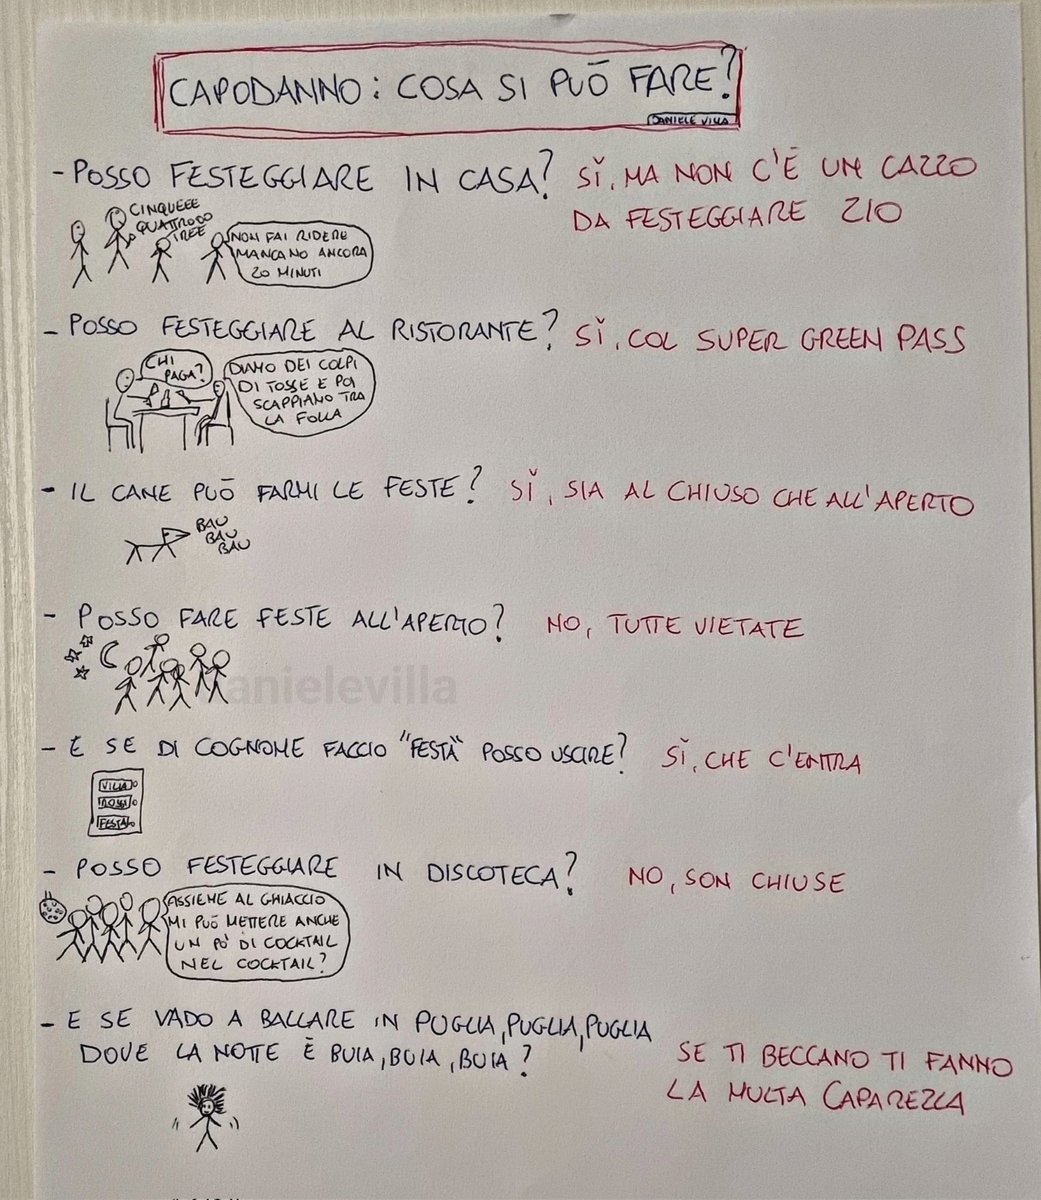 CAPODANNO: COSA SI PUÒ FARE?
DANIELE VILLA
- POSSO FESTEGGIARE IN CASA? SÌ, MA NON C'È UN CAZZO
DA FESTEGGIARE ZIO
CINQUEEE
QUATTROOO
TREE
NON FAI RIDERE
MANCANO ANCORA
20 MINUTI
- POSSO FESTEGGIARE AL RISTORANTE? SÌ, COL SUPER GREEN PASS
CHI
PAGA?
DIAMO DEI COLPI
DI TOSSE E POI
SCAPPIANO TRA
LA FOLLA
- IL CANE PUÒ FARMI LE FESTE? SÌ, SIA AL CHIUSO CHE ALL'APERTO
BAU
BAU
BAU
- POSSO FARE FESTE ALL'APERTO? NO, TUTTE VIETATE
danielevilla
- E SE DI COGNOME FACCIO "FESTA" POSSO USCIRE? SÌ, CHE C'ENTRA
VILLA
ROSSI
FESTA
- POSSO FESTEGGIARE IN DISCOTECA? NO, SON CHIUSE
ASSIEME AL GHIACCIO
MI PUÒ METTERE ANCHE
UN PO' DI COCKTAIL
NEL COCKTAIL?
- E SE VADO A BALLARE IN PUGLIA, PUGLIA, PUGLIA
DOVE LA NOTTE È BUIA, BUIA, BUIA?
SE TI BECCANO TI FANNO
LA MULTA CAPAREZZA